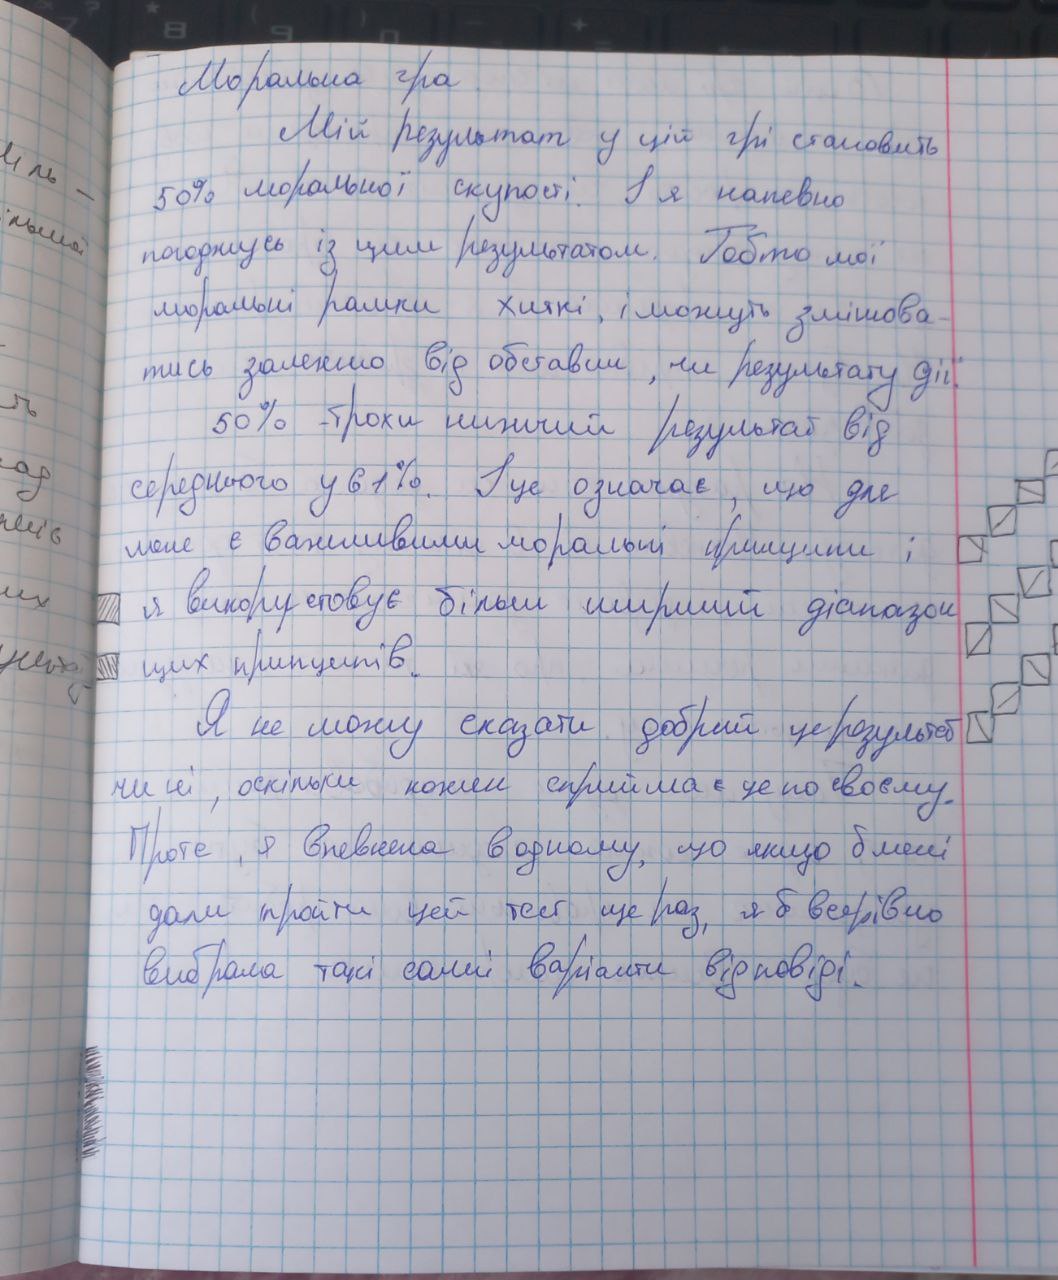 Моральна гра
Мій результат у цій грі становить
50% моральної скупості. І я напевно
погоджусь із цим результатом. Тобто мої
моральні рамки хиткі, і можуть змінюва-
тись залежно від обставин, чи результату дії.
50% - трохи нижчий результат від
середнього у 61%. І це означає, що для
мене є важливими моральні принципи і
я використовує більш ширший діапазон
цих принципів.
Я не можу сказати добрий це результат
чи ні, оскільки кожен сприймає це по своєму.
Проте, я впевнена в одному, що якщо б мені
дали пройти цей тест ще раз, я б всерівно
вибрала такі самі варіанти відповіді.